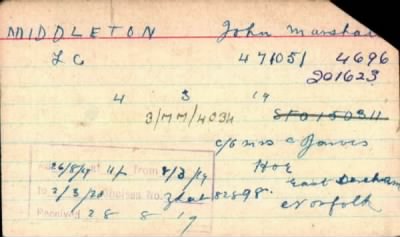 MIDDLETON John Marshal
LC 471051 4696
201623
4 3 19
3/MM/4034 SFO15034
c/o Mrs C Jarvis
26/8/19 from 8/3/19 Hoe
East Dereham
to 7/3/20 No. 82898. Norfolk
Received 28 8 19